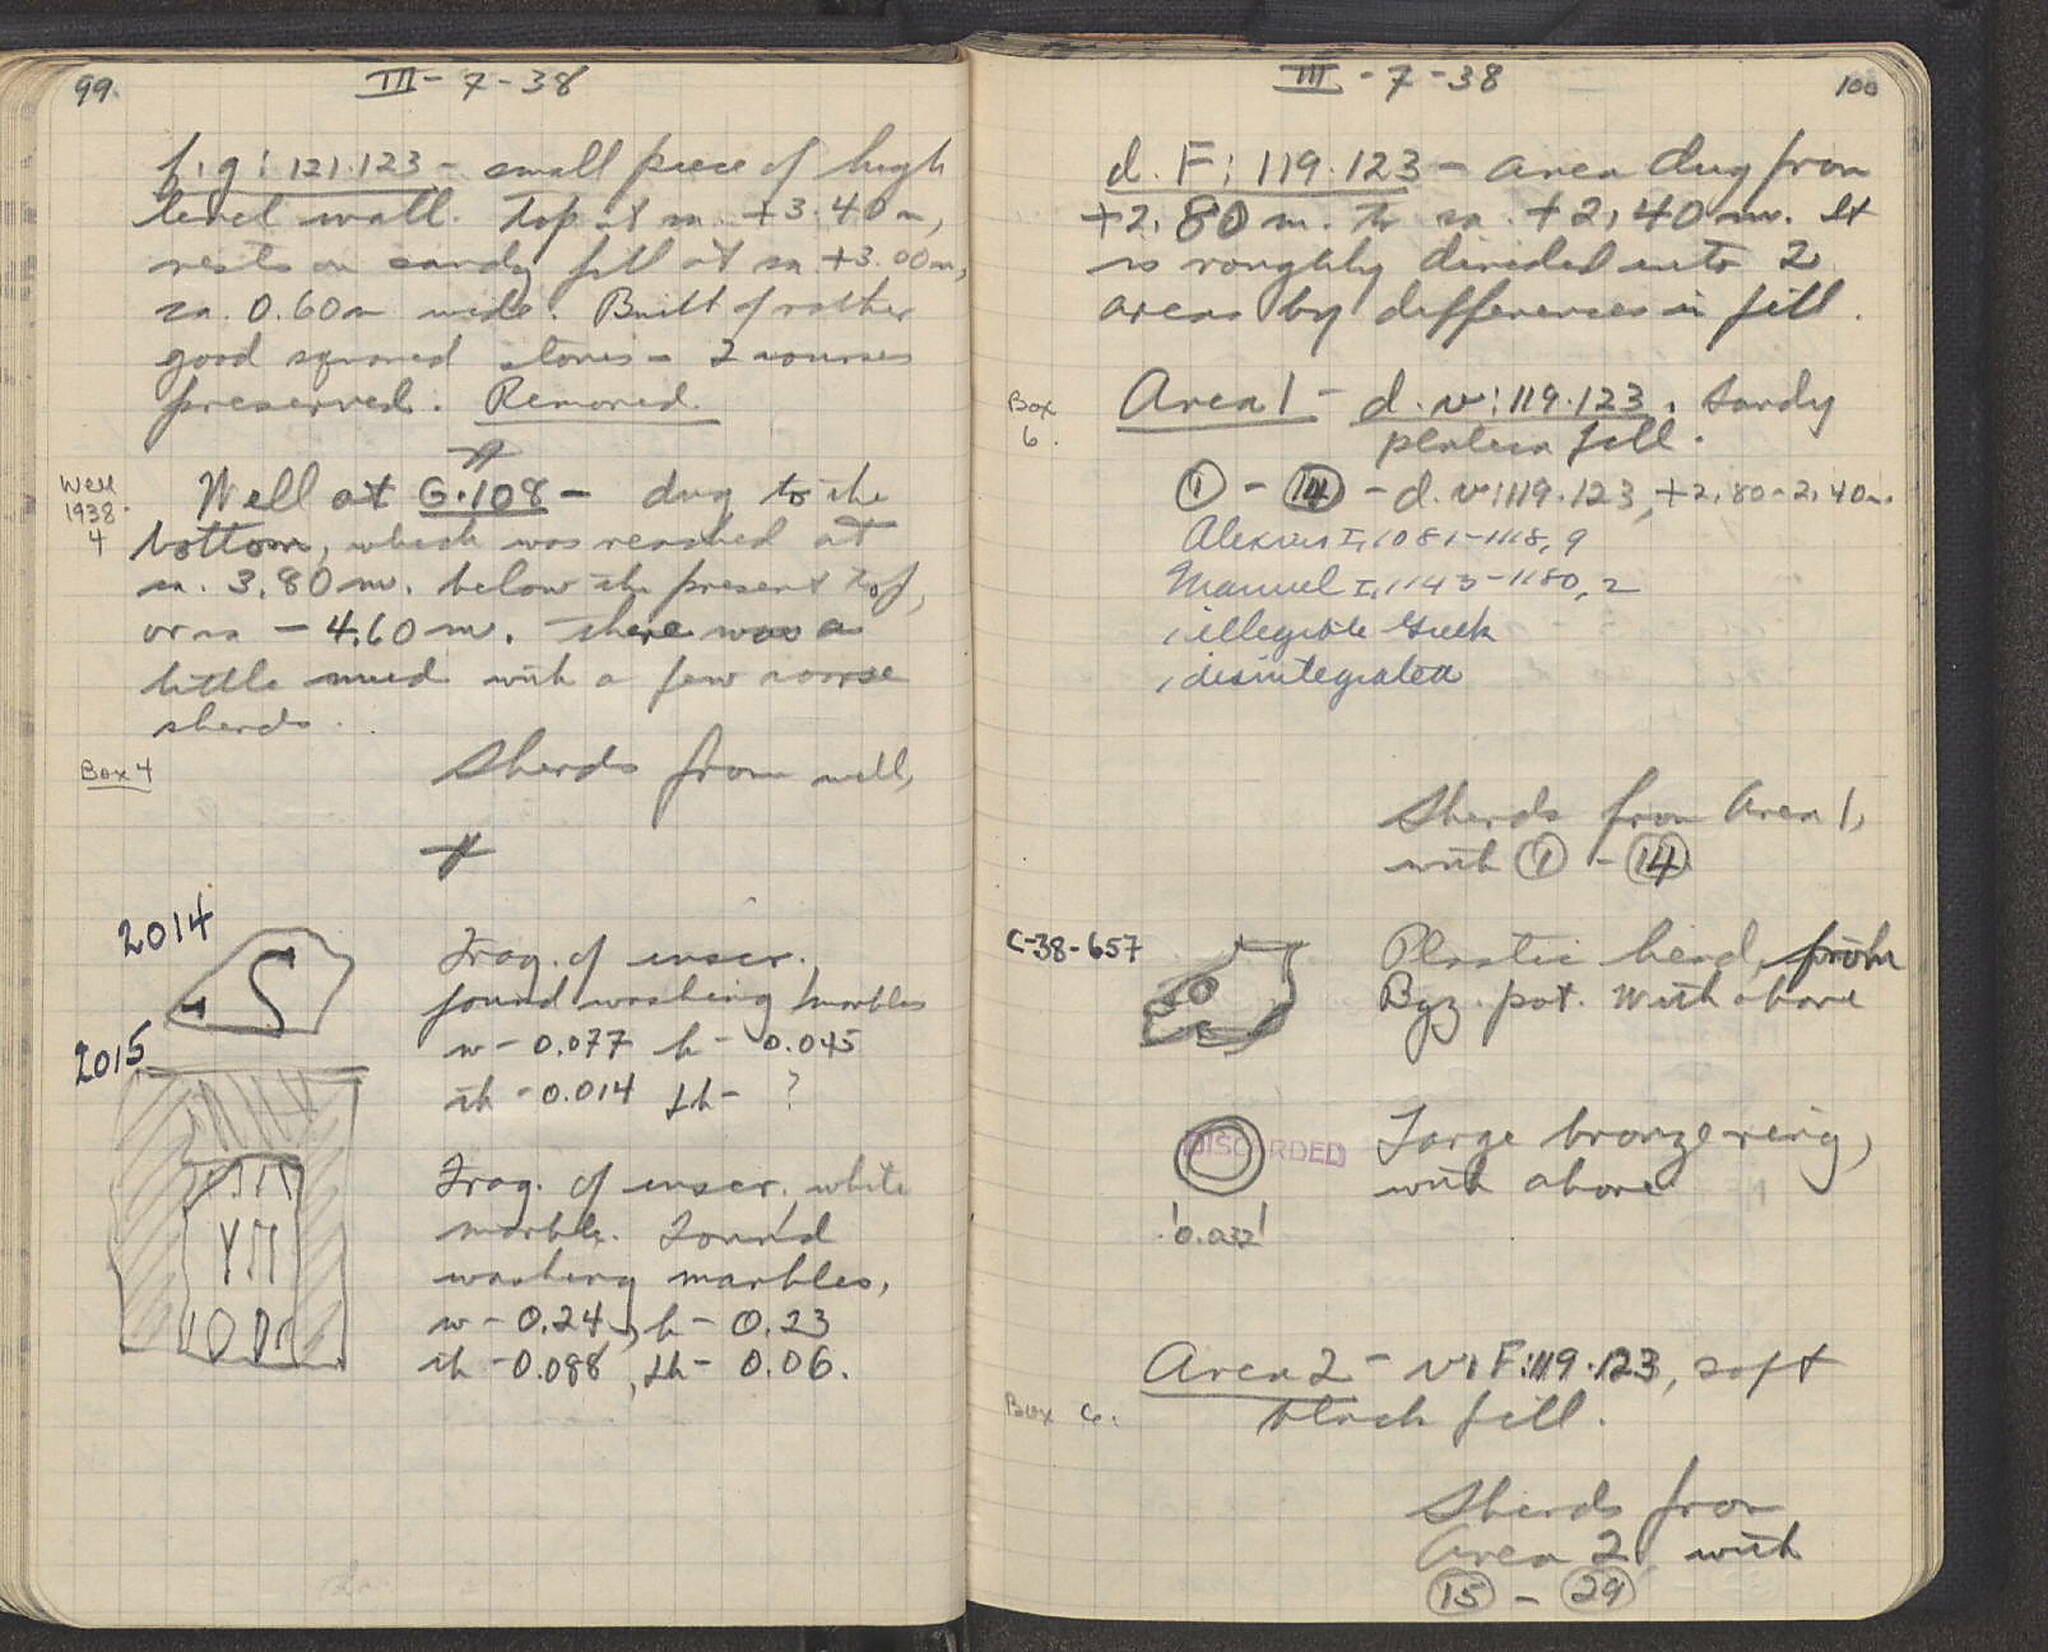 99.
III - 7 - 38
f, g : 121.123 - small piece of high
level wall. Top at ca. +3.40 m,
rests on sandy fill at ca. +3.00 m,
ca. 0.60 m wide. Built of rather
good squared stones - 2 courses
preserved. Removed.
Well
1938-
4
Well at G.108 - dug to the
bottom, which was reached at
ca. 3.80 m. below the present top,
or ca - 4.60 m. There was a
little mud with a few coarse
sherds.
Box 4
Sherds from well,
2014
Frag. of inscr.,
found washing marbles
w - 0.077 h - 0.045
th - 0.014 Lh - ?
2015
Frag. of inscr., white
marble. Found
washing marbles,
w - 0.24, h - 0.23
th - 0.088, Lh - 0.06.
III - 7 - 38
100
d. F : 119.123 - area dug from
+2.80 m. to ca. +2.40 m. It
is roughly divided into 2
areas by differences in fill.
Box
6.
Area 1 - d. v : 119.123. Sandy
plateia fill.
1 - 14 - d. v : 119.123, +2.80-2.40 m.
Alexius I, 1081-1118, 9
Manuel I, 1143-1180, 2
1 illegible Greek
1 disintegrated
Sherds from Area 1,
with 1 - 14
C-38-657
Plastic head, from
Byz. pot. With above
DISCARDED
Large bronze ring,
with above
0.032
Area 2 - v, F : 119.123, soft
black fill.
Box 6.
Sherds from
Area 2, with
15 - 29